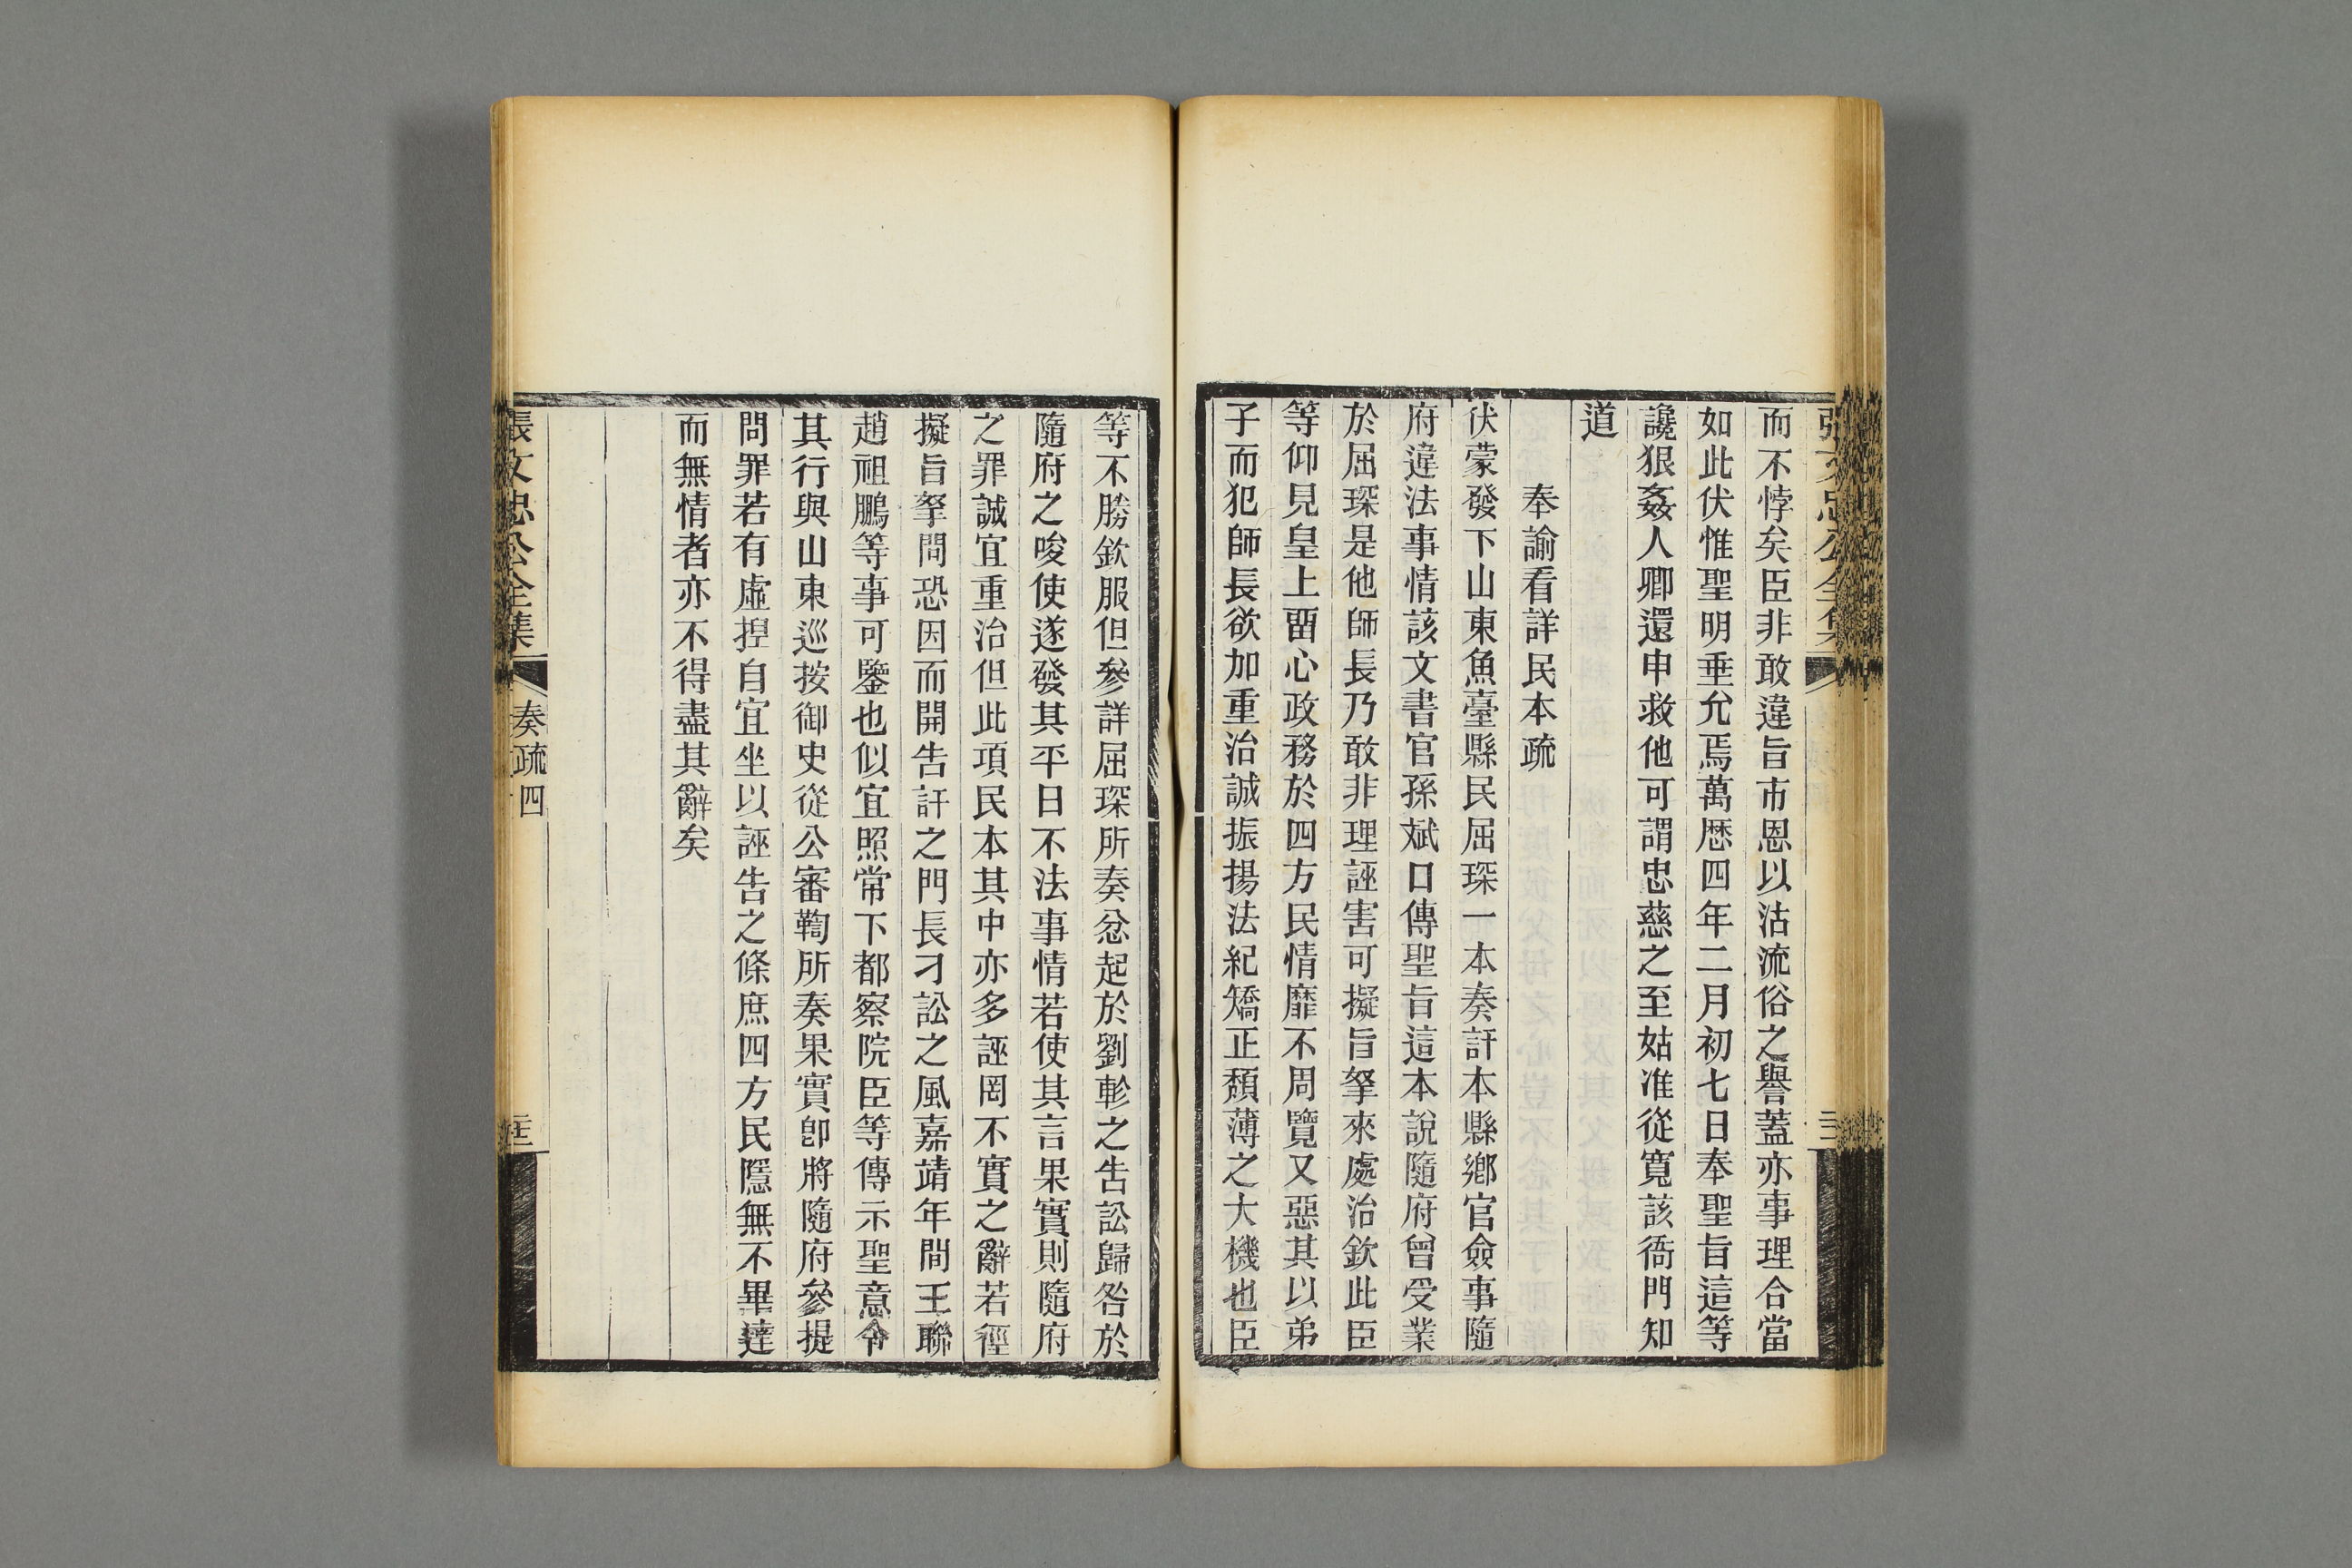 而不悖矣臣非敢違旨市恩以沽流俗之譽蓋亦事理合當
如此伏惟聖明垂允焉萬歷四年二月初七日奉聖旨這等
讒狠姦人卿還申救他可謂忠慈之至姑准從寬該衙門知
道
奉諭看詳民本疏
伏蒙發下山東魚臺縣民屈琛一本奏訐本縣鄉官僉事隨
府違法事情該文書官孫斌口傳聖旨這本說隨府曾受業
於屈琛是他師長乃敢非理誣害可擬旨拏來處治欽此臣
等仰見皇上畱心政務於四方民情靡不周覽又惡其以弟
子而犯師長欲加重治誠振揚法紀矯正頹薄之大機也臣
等不勝欽服但參詳屈琛所奏忿起於劉軫之告訟歸咎於
隨府之唆使遂發其平日不法事情若使其言果實則隨府
之罪誠宜重治但此項民本其中亦多誣罔不實之辭若徑
擬旨拏問恐因而開告訐之門長刁訟之風嘉靖年間王聯
趙祖鵬等事可鑒也似宜照常下都察院臣等傳示聖意令
其行與山東巡按御史從公審鞫所奏果實卽將隨府參提
問罪若有虛揑自宜坐以誣告之條庶四方民隱無不畢達
而無情者亦不得盡其辭矣
張文忠公全集
奏疏四